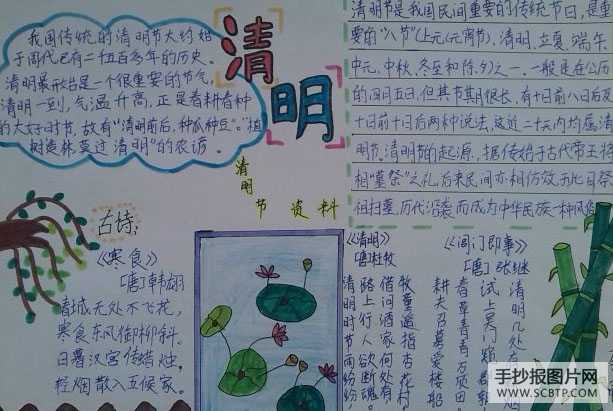 我国传统的清明节大约始
于周代已有二千五百多年的历史。
清明最开始是一个很重要的节气
清明一到,气温升高,正是春耕春种
的大好时节,故有"清明前后,种瓜种豆"。"植
树造林莫过清明"的农谚。
清明
清明节是我国民间重要的传统节日,是重
要的"八节"(上元(元宵节)、清明、立夏、端午、
中元、中秋、冬至和除夕)之一。一般是在公历
的四月五日,但其节期很长,有十日前八日后及
十日前十日后两种说法,这近二十天内均属清
明节。清明节的起源,据传始于古代帝王将
相"墓祭"之礼,后来民间亦相仿效,于此日祭
祖扫墓,历代沿袭而成为中华民族一种风俗
清明节资料
古诗:
《寒食》
[唐]韩翃
青城无处不飞花,
寒食东风御柳斜。
日暮汉宫传蜡烛,
轻烟散入五候家。
《清明》
[唐]杜牧
清明时节雨纷纷
路上行人欲断魂
借问酒家何处有
牧童遥指杏花村
《闾门即事》
[唐]张继
耕夫召募爱楼船
春草青青万顷田
试上吴门
清明几处
手抄报图片网
WWW.SCBTP.COM